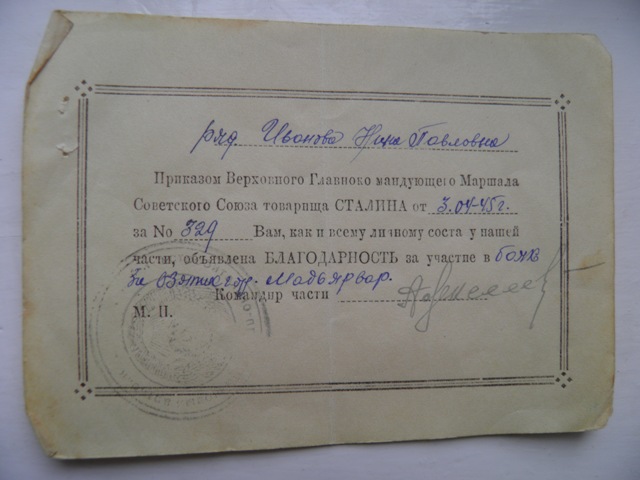 ряд. Иванова Нина Павловна
Приказом Верховного Главноко мандующего Маршала
Советского Союза товарища СТАЛИНА от 3.04-45г.
за No 329 Вам, как и всему личному соста у нашей
части, объявлена БЛАГОДАРНОСТЬ за участие в боях
за взятие гор. Мадьярвар.
Командир части
М. П.